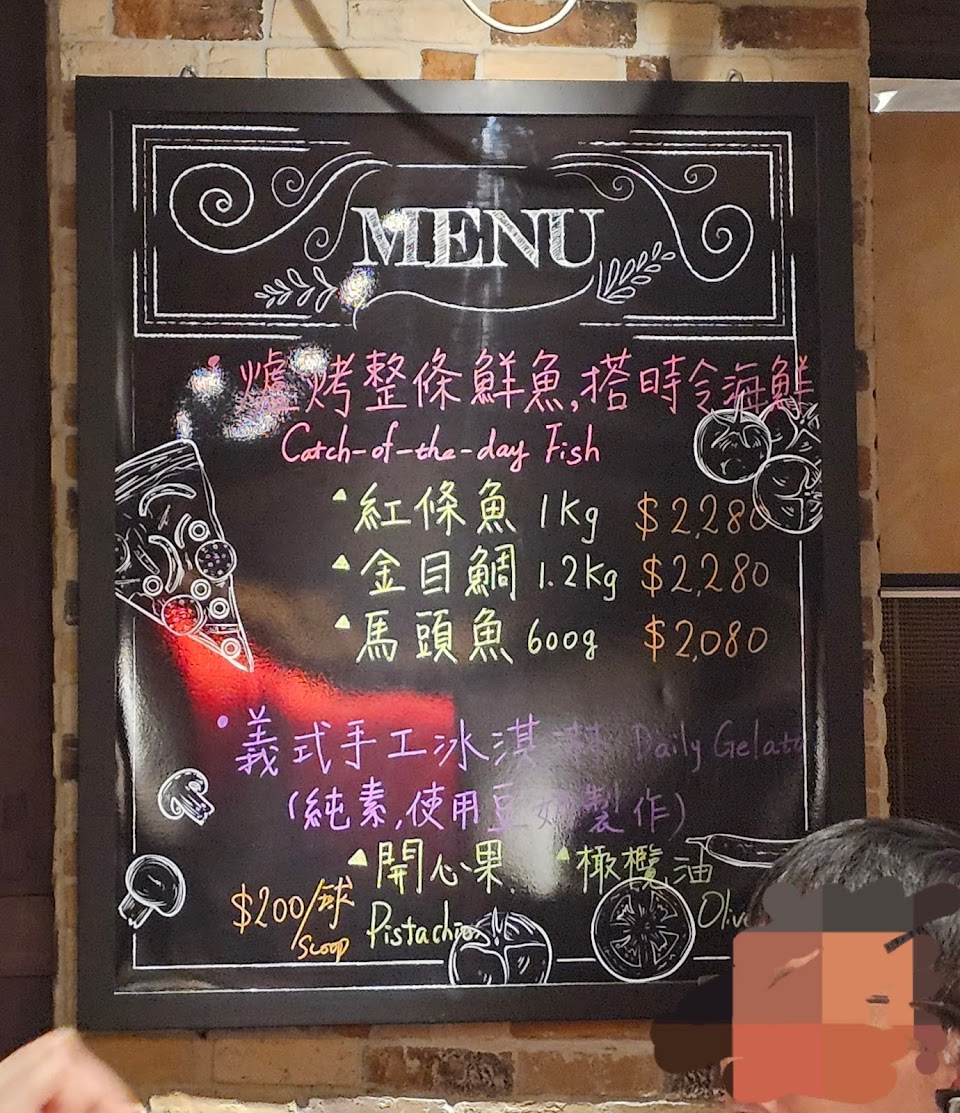 MENU
爐烤整條鮮魚,搭時令海鮮
Catch-of-the-day Fish
紅條魚 1Kg $2,280
金目鯛 1.2Kg $2,280
馬頭魚 600g $2,080
義式手工冰淇淋 Daily Gelato
(純素,使用豆奶製作)
開心果 橄欖油
$200/球 Pistachio
Scoop